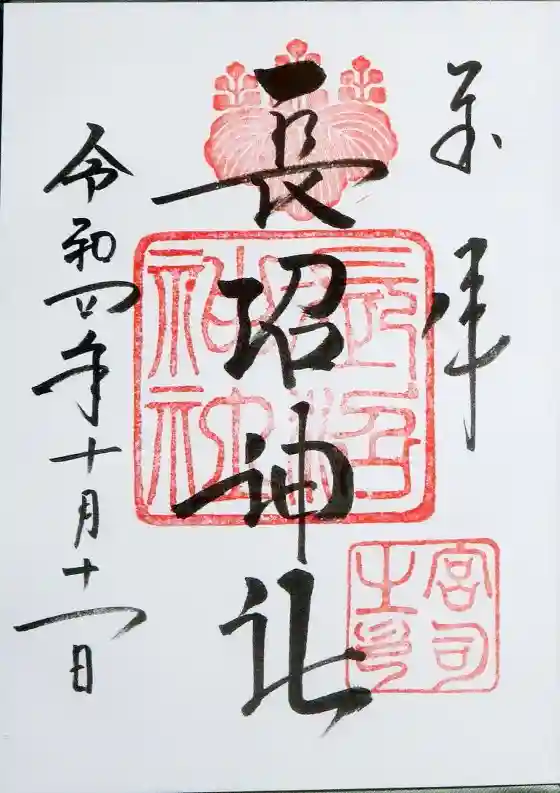 奉拝
長沼神社
令和四年十月十一日
長沼神社
宮司之印